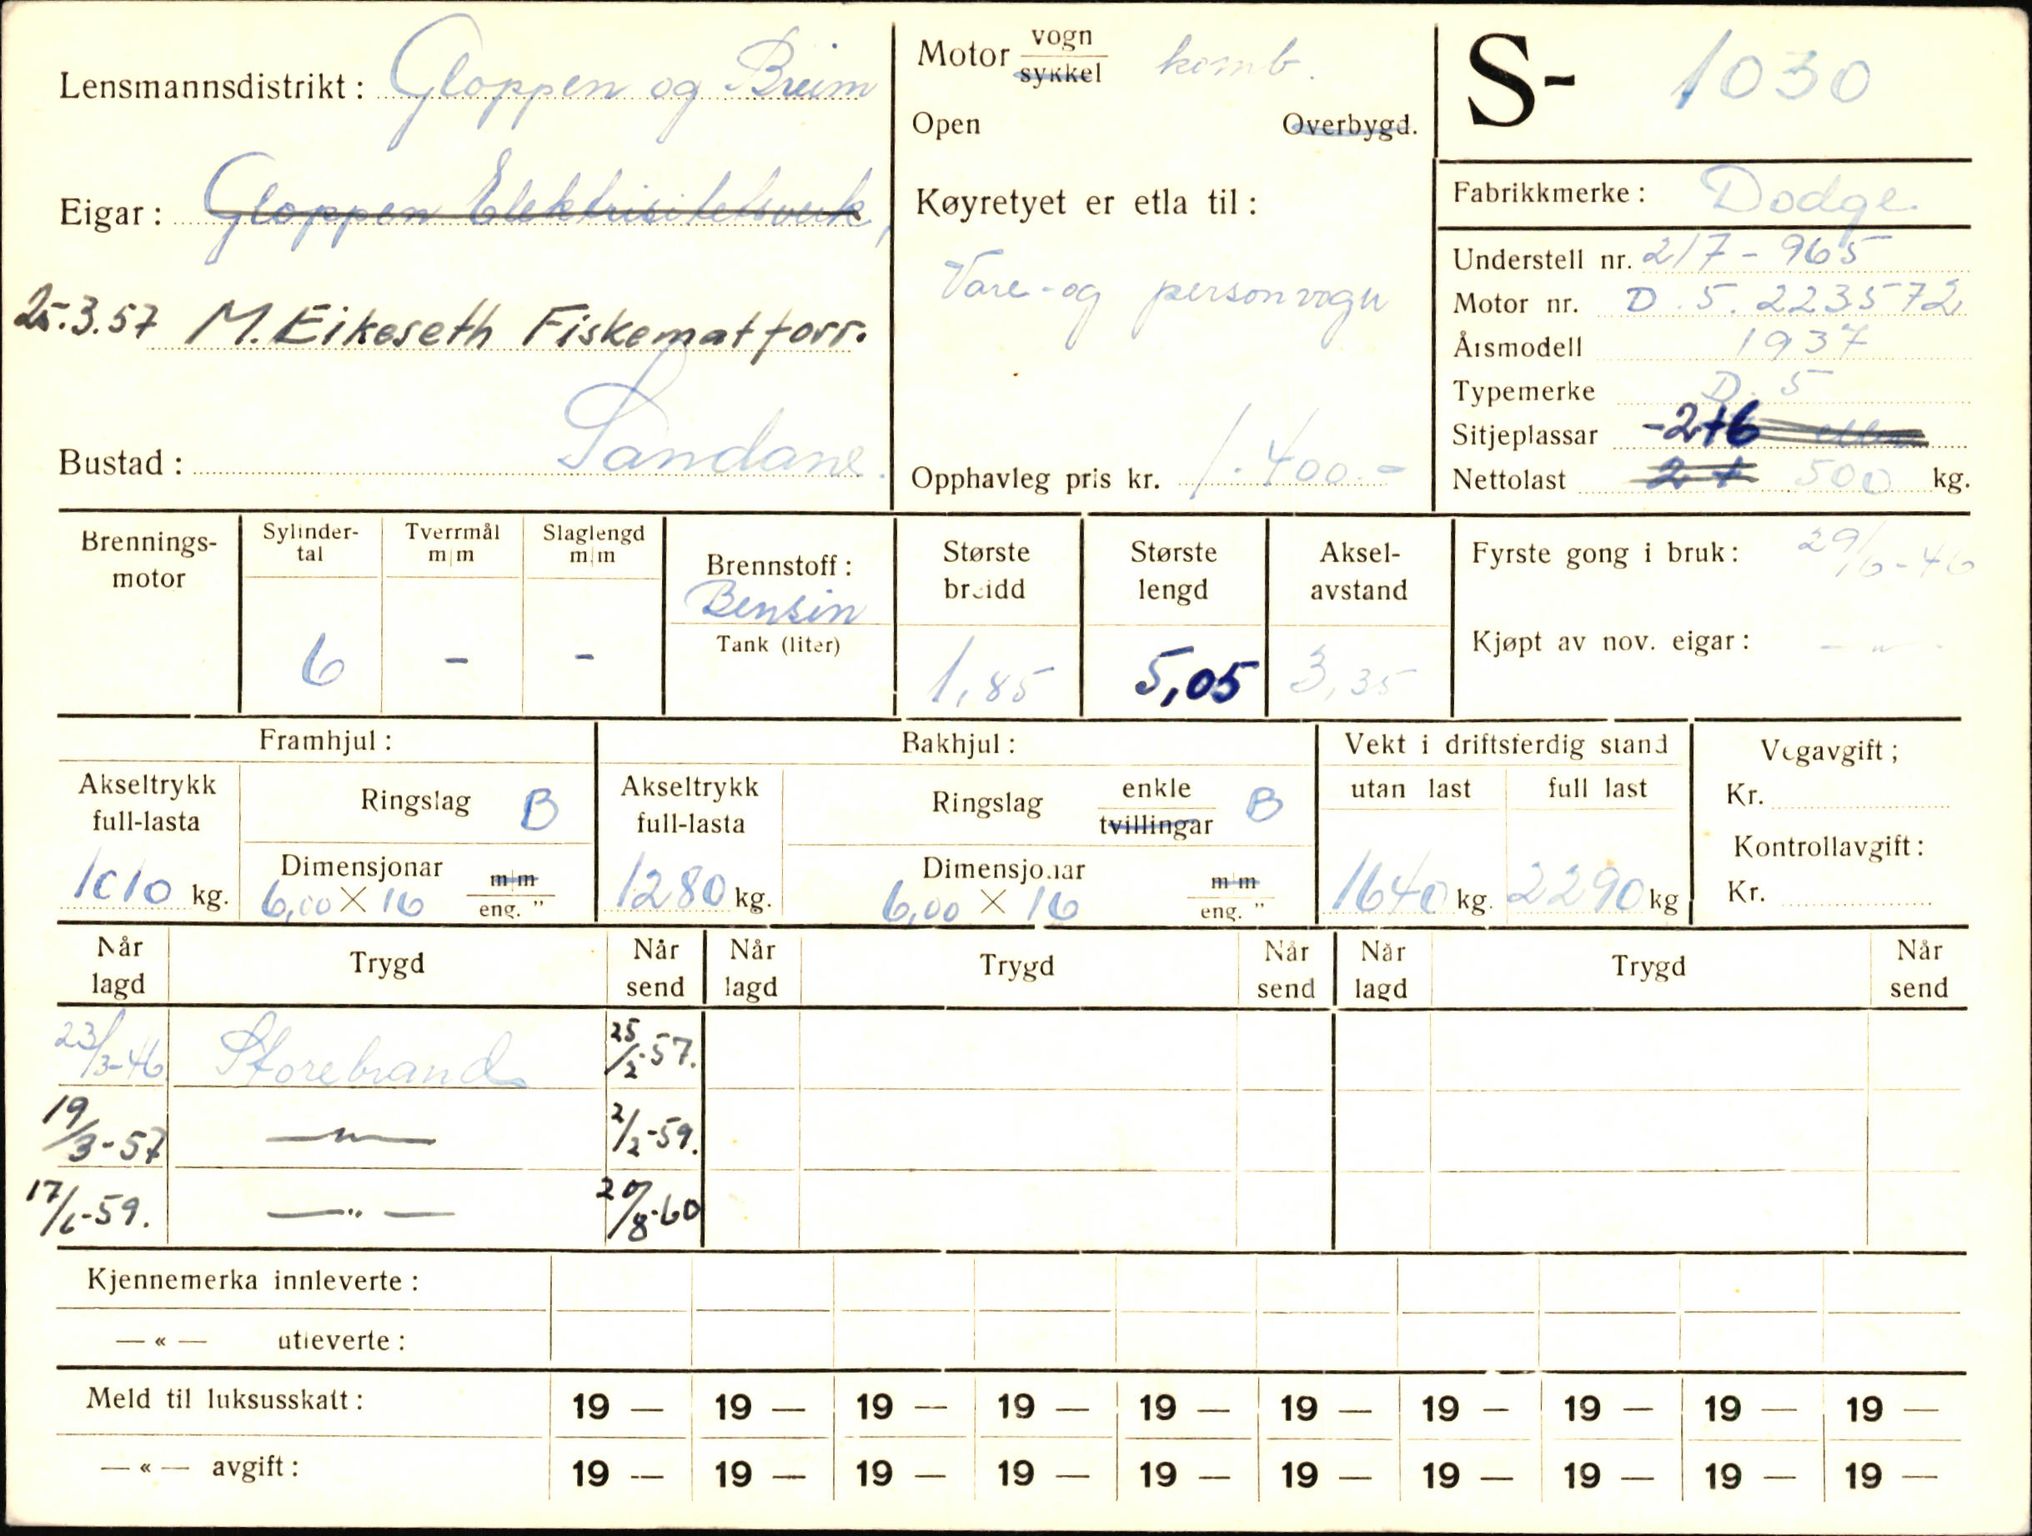 Lensmannsdistrikt: Gloppen og Breim
Eigar: Gloppen Elektrisitetsverk,
25.3.57 M. Eikeseth Fiskematforr.
Bustad: Sandane.
Motor vogn sykkel komb.
Open Overbygd.
Køyretyet er etla til:
Vare- og personvogn
Opphavleg pris kr. 1.400.-
S- 1030
Fabrikkmerke: Dodge
Understell nr. 217-965
Motor nr. D.5.223572
Årsmodell 1937
Typemerke D.5
Sitjeplassar -2+6 eller
Nettolast 2 + 500 kg.
Brennings-motor
Sylinder-tal
Tverrmål m|m
Slaglengd m|m
Brennstoff:
Bensin
Tank (liter)
Største breidd
Største lengd
Aksel-avstand
6 - - 1,85 5,05 3,35
Fyrste gong i bruk: 29/6-46
Kjøpt av nov. eigar: — " —
Framhjul:
Bakhjul:
Vekt i driftsferdig stand
Vegavgift;
Akseltrykk full-lasta
Ringslag B
Akseltrykk full-lasta
Ringslag enkle tvillingar B
utan last full last
Kr.
Kontrollavgift:
Kr.
1010 kg.
Dimensjonar m|m
6,00 × 16 eng. "
1280 kg.
Dimensjonar m|m
6,00 × 16 eng. "
1640 kg. 2290 kg
Når lagd Trygd Når send Når lagd Trygd Når send Når lagd Trygd Når send
23/3-46 Storebrand 25/2-57.
19/3-57 —"— 2/2-59.
17/6-59. —"— 20/8-60
Kjennemerka innleverte:
— « — utleverte:
Meld til luksusskatt: 19 — 19 — 19 — 19 — 19 — 19 — 19 — 19 — 19 — 19 —
— « — avgift: 19 — 19 — 19 — 19 — 19 — 19 — 19 — 19 — 19 — 19 —